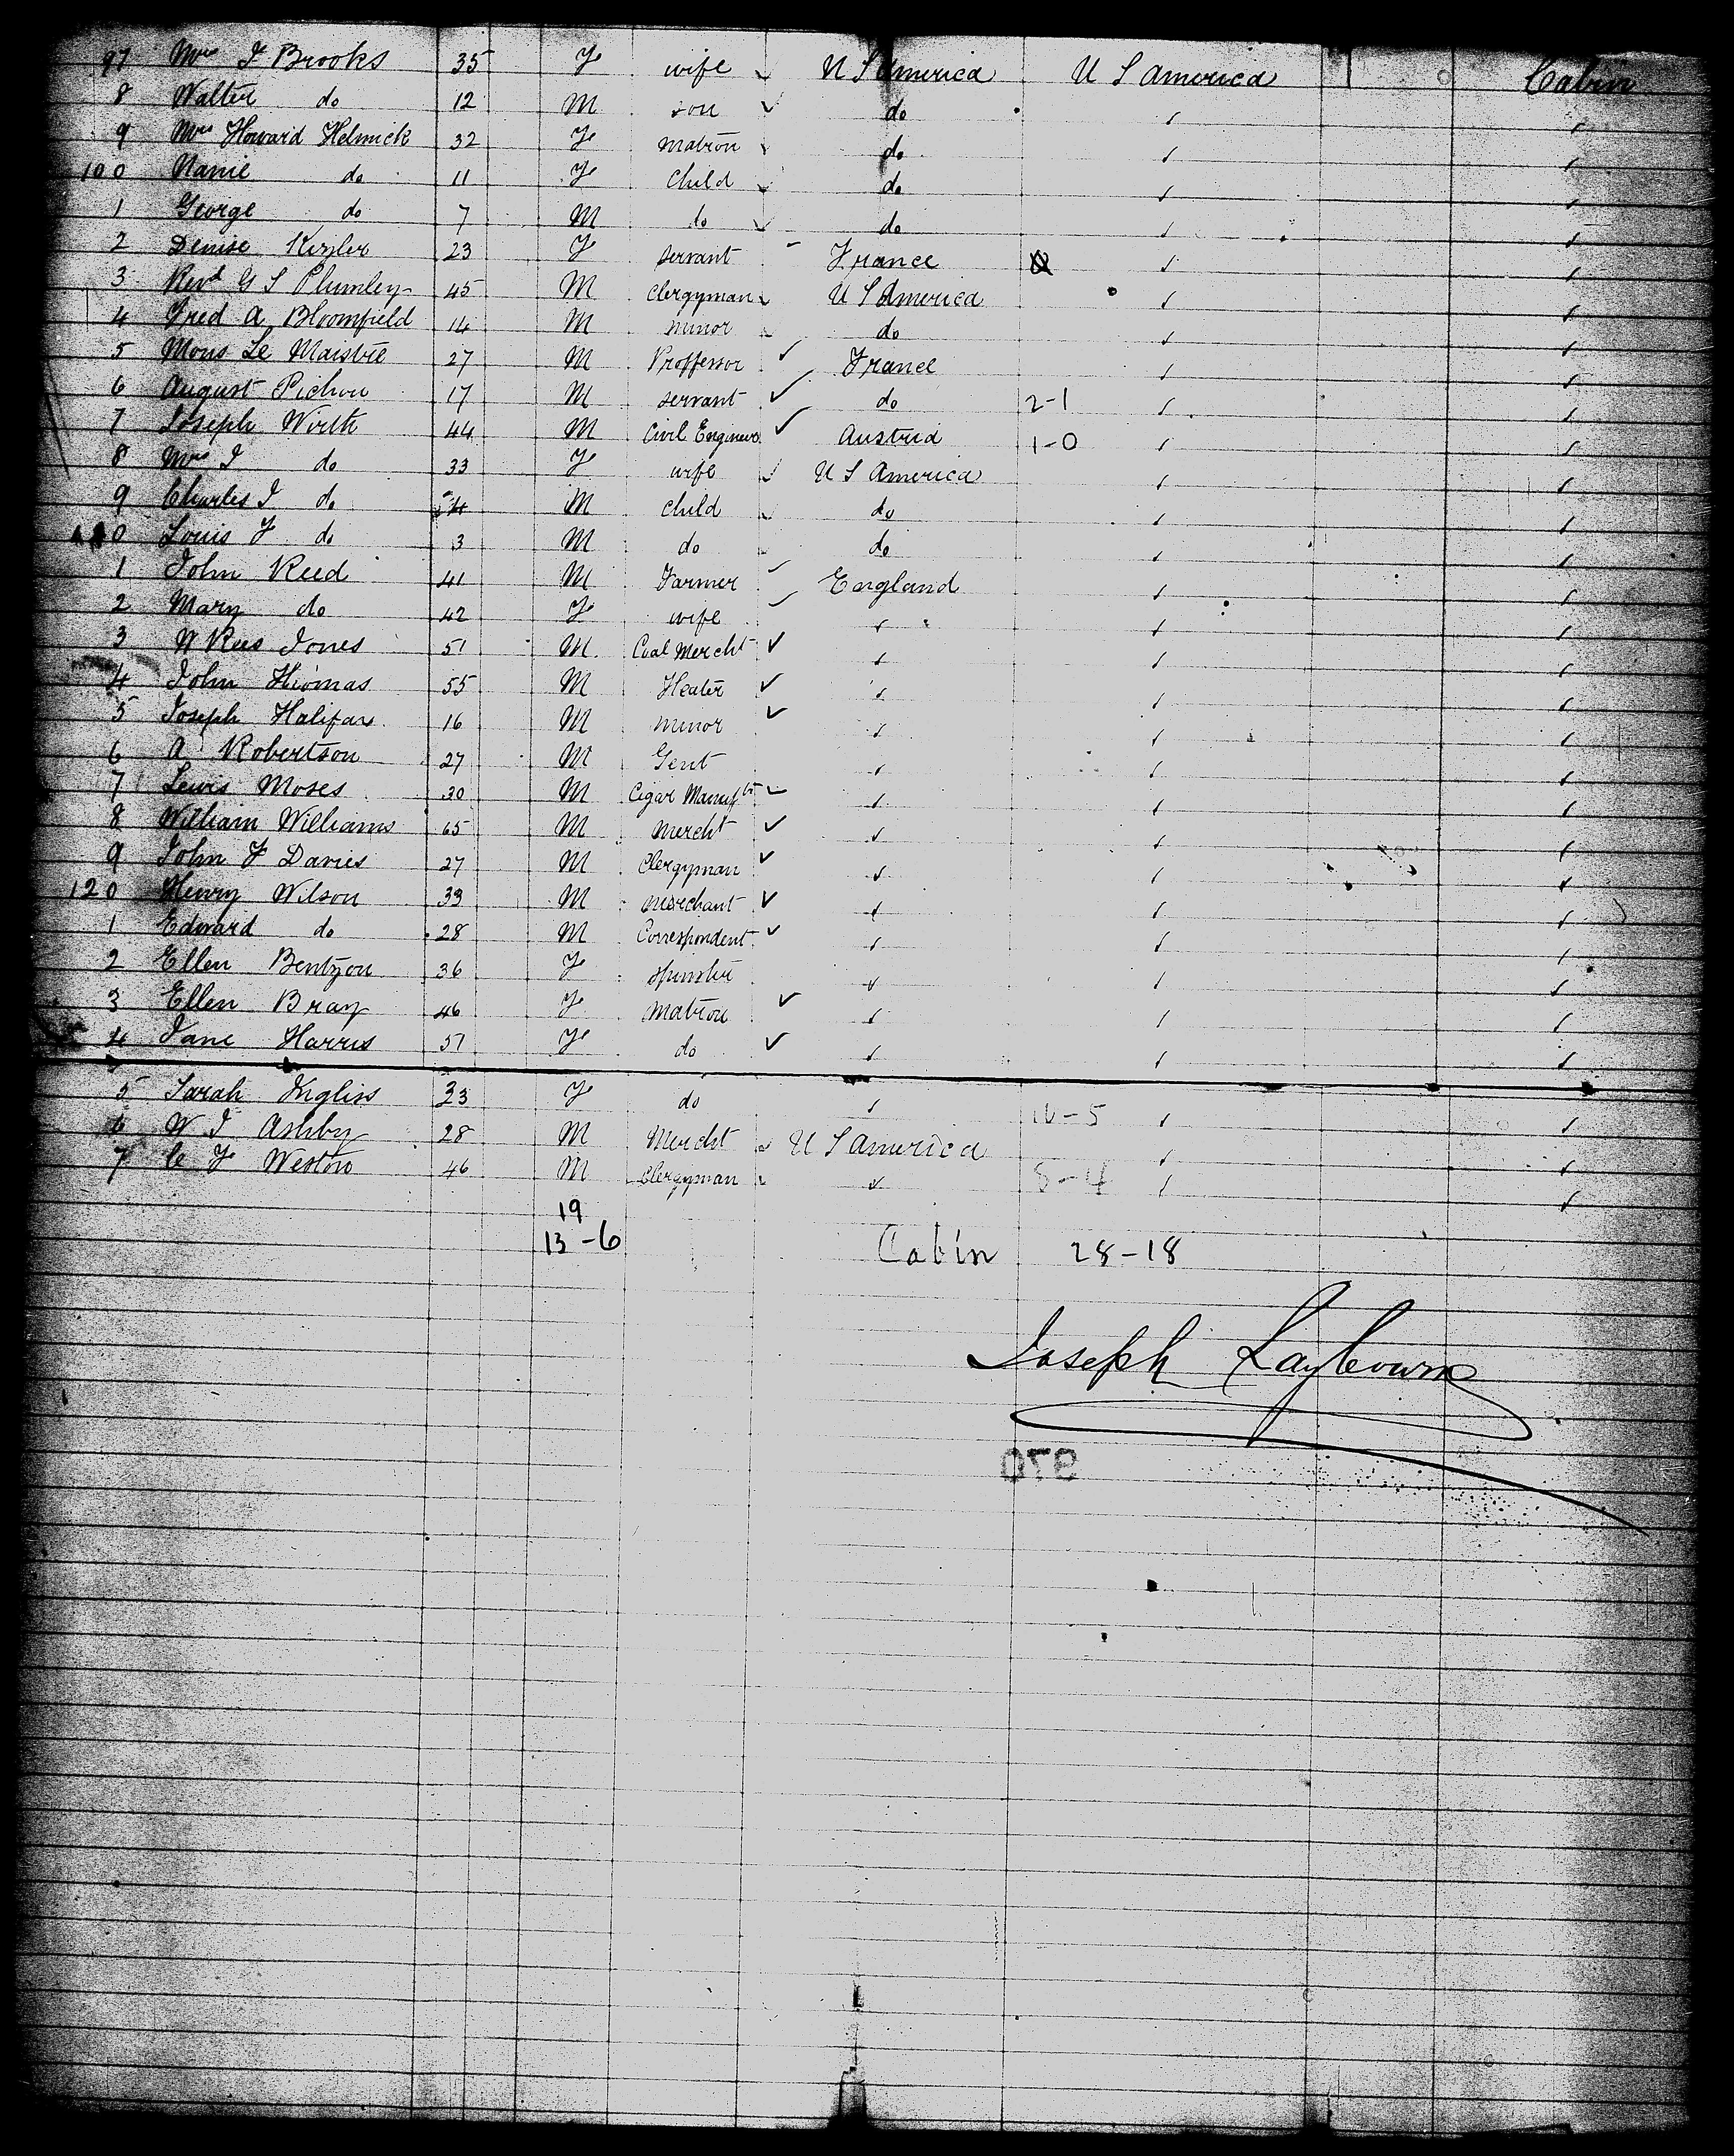 97 Mrs I Brooks 35 F wife U S America U S America Cabin
8 Walter do 12 M son do
9 Mrs Howard Helmick 32 F Matron do
100 Nanie do 11 F Child do
1 George do 7 M do do
2 Denise Kezler 23 F servant France
3 Revd G S Plumley 45 M Clergyman U S America
4 Fred A Bloomfield 14 M minor do
5 Mons Le Maistre 27 M Proffessor France
6 August Pichon 17 M servant do 2-1
7 Joseph Wirth 44 M Civil Engineer Austria 1-0
8 Mrs J do 33 F wife U S America
9 Charles J do 4 M child do
110 Louis F do 3 M do do
1 John Reed 41 M Farmer England
2 Mary do 42 F wife
3 W Rees Jones 51 M Coal Mercht
4 John Thomas 55 M Heater
5 Joseph Halifax 16 M minor
6 A Robertson 27 M Gent
7 Lewis Moses 30 M Cigar Manuftr
8 William Williams 65 M Mercht
9 John F Davies 27 M Clergyman
120 Henry Wilson 33 M Merchant
1 Edward do 28 M Correspondent
2 Ellen Bentzon 36 F Spinster
3 Ellen Bray 46 F Matron
4 Jane Harris 57 F do
5 Sarah Ingliss 33 F do 16-5
6 W J Ashby 28 M Mercht U S America
7 C F Weston 46 M Clergyman 8-4
19
13-6 Cabin 28-18
Joseph Laybourne
970